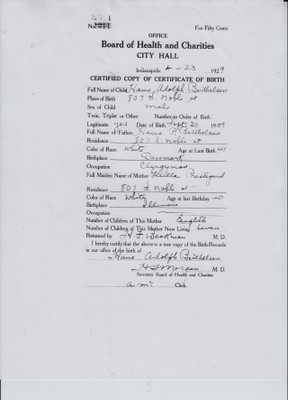 For Fifty Cents
No.
OFFICE
Board of Health and Charities
CITY HALL
Indianapolis 4-23 1929
CERTIFIED COPY OF CERTIFICATE OF BIRTH
Full Name of Child, Hans Adolph Berthelsen
Place of Birth 807 N. Noble st
Sex of Child male
Twin, Triplet or Other Number in Order of Birth
Legitimate yes Date of Birth Sept. 20 1909
Full Name of Father, Hans P. Berthelsen
Residence 807 N. Noble st
Color of Race White Age at Last Birth 41
Birthplace Denmark
Occupation Clergyman
Full Maiden Name of Mother
Residence 807 N Noble st
Color of Race White Age at last Birthday 40
Birthplace Illinois
Occupation
Number of Children of This Mother Eighth
Number of Children of This Mother Now Living Seven
Returned by M. D.
I hereby certify that the above is a true copy of the Birth Records
in our office of the birth of
Hans Adolph Berthelsen
H G Morgan M. D.
Secretary Board of Health and Charities
Clerk